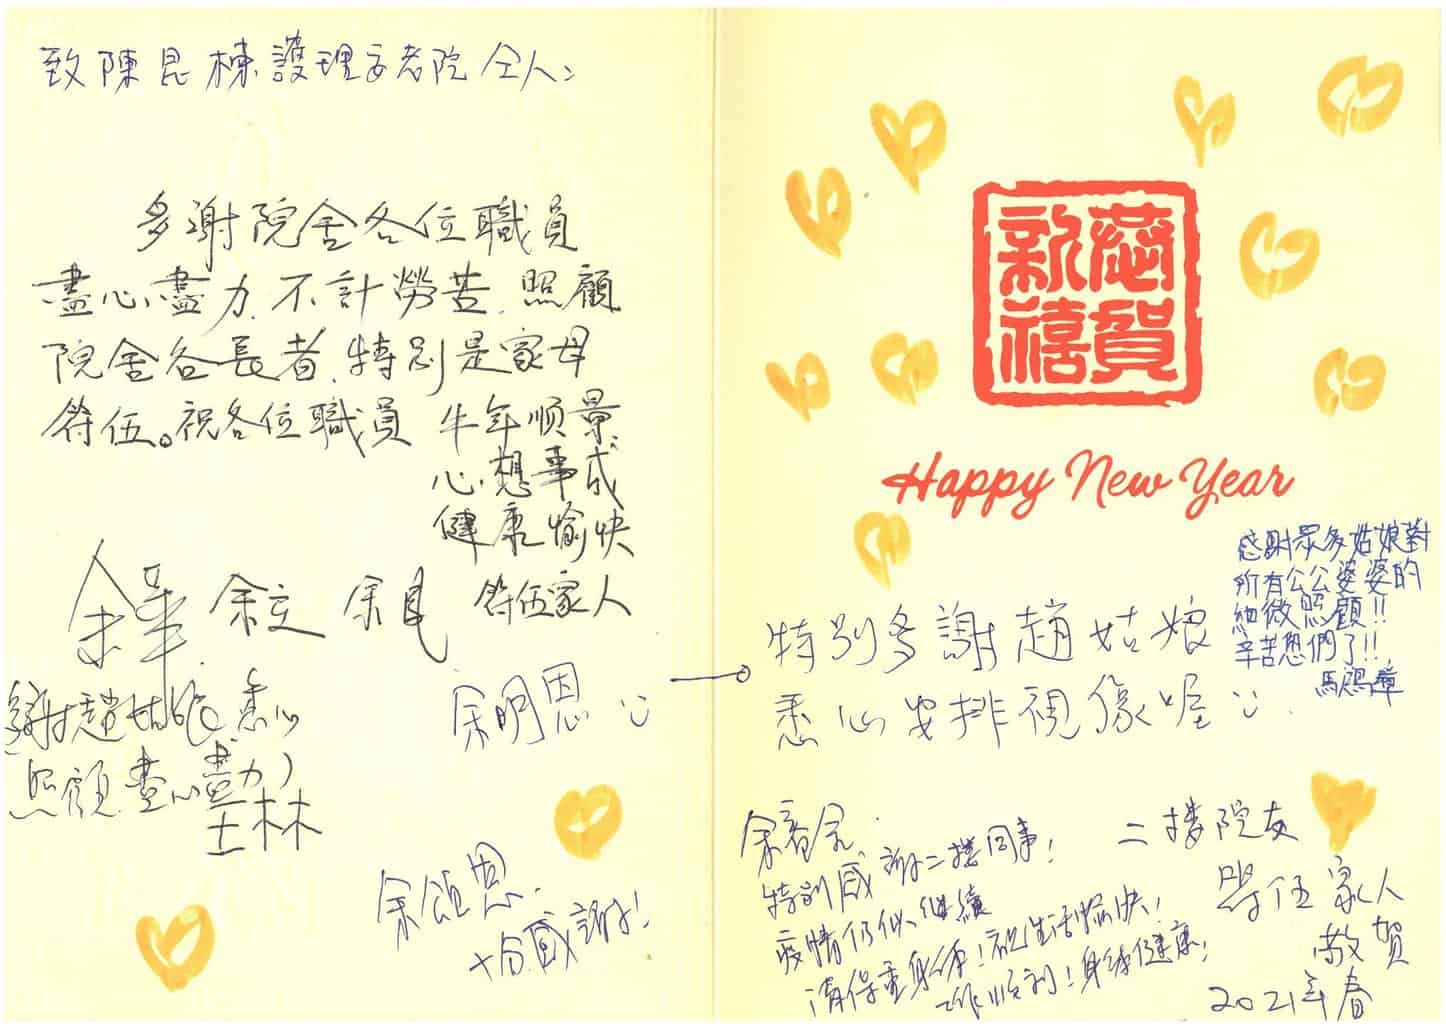 致陳昆棟護理安老院全人：
多謝院舍各位職員
盡心盡力,不計勞苦,照顧
院舍各長者,特別是家母
符伍。祝各位職員 牛年順景
心想事成
健康愉快
符伍家人
余立
余明恩
謝趙姑娘悉心
照顧 盡心盡力)
士林
余頌恩
十分感謝!
恭賀
新禧
Happy New Year
感謝眾多姑娘對
所有公公婆婆的
細微照顧!!
辛苦您們了!!
特別多謝趙姑娘
悉心安排視像喔
特別感謝二樓同事!
疫情仍似繼續
請保重身体!祝生活愉快!
工作順利!身体健康!
二樓院友
符伍家人
敬賀
2021年春